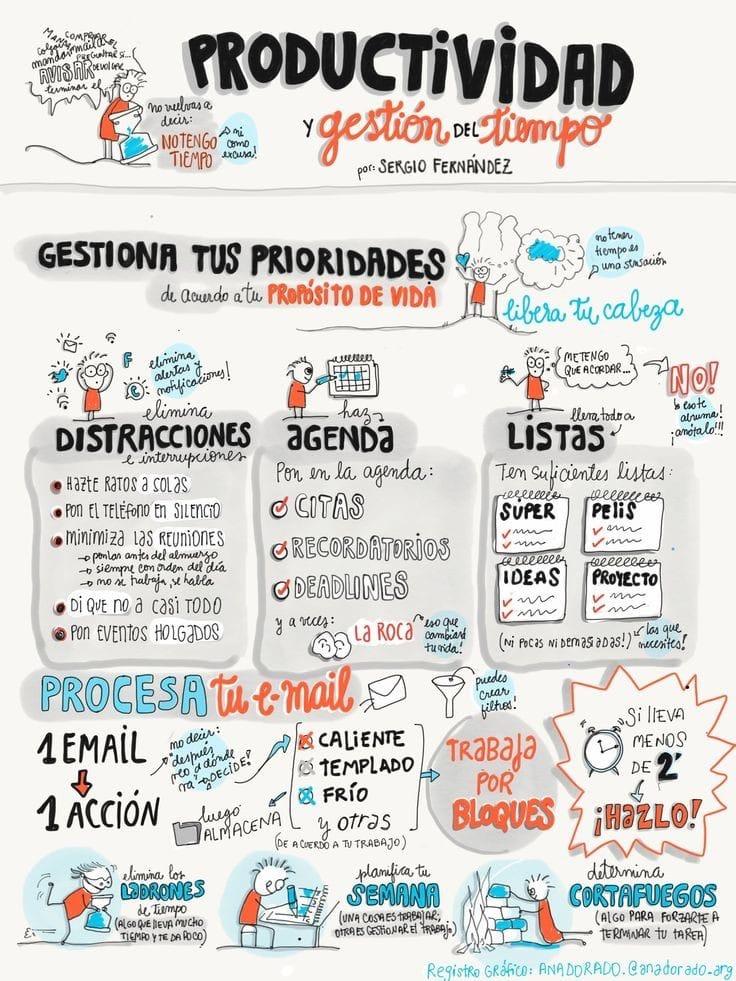 MANDAR COMPRAR
colgar mail a
mandar PREGUNTAR SI...
AVISAR DEVOLVER
terminar el
PRODUCTIVIDAD
Y gestión DEL tiempo
por: SERGIO FERNÁNDEZ
no vuelvas a
decir:
NO TENGO
TIEMPO
ni
como
excusa!
GESTIONA TUS PRIORIDADES
de acuerdo a tu PROPÓSITO DE VIDA
no tener
tiempo es
una sensación
libera tu cabeza
F
elimina
alertas y
notificaciones!
elimina
DISTRACCIONES
e interrupciones
HAZTE RATOS A SOLAS
PON EL TELÉFONO EN SILENCIO
MINIMIZA LAS REUNIONES
ponlas antes del almuerzo
siempre con orden del día
no se trabaja, se habla
DI QUE NO A CASI TODO
PON EVENTOS HOLGADOS
haz
AGENDA
Pon en la agenda:
CITAS
RECORDATORIOS
DEADLINES
y a veces:
LA ROCA
eso que
cambiará
tu vida!
ME TENGO
QUE ACORDAR...
NO!
eso te
abruma!
¡anótalo!!!
lleva todo a
LISTAS
Ten suficientes listas:
SÚPER
PELIS
IDEAS
PROYECTO
(NI POCAS NI DEMASIADAS!)
las que
necesites!
PROCESA tu e-mail
puedes
crear
filtros!
1 EMAIL
1 ACCIÓN
no decir:
"después
veo a dónde
va"
DECIDE!
luego
ALMACENA
CALIENTE
TEMPLADO
FRÍO
y otras
(DE ACUERDO A TU TRABAJO)
TRABAJA
POR
BLOQUES
SI LLEVA
MENOS
DE 2'
¡HAZLO!
elimina los
LADRONES
de tiempo
(ALGO QUE LLEVA MUCHO
TIEMPO Y TE DA POCO)
planifica tu
SEMANA
(UNA COSA ES TRABAJAR,
OTRA ES GESTIONAR EL TRABAJO)
determina
CORTAFUEGOS
(ALGO PARA FORZARTE A
TERMINAR TU TAREA)
Registro Gráfico: ANA DORADO. @anadorado_arq